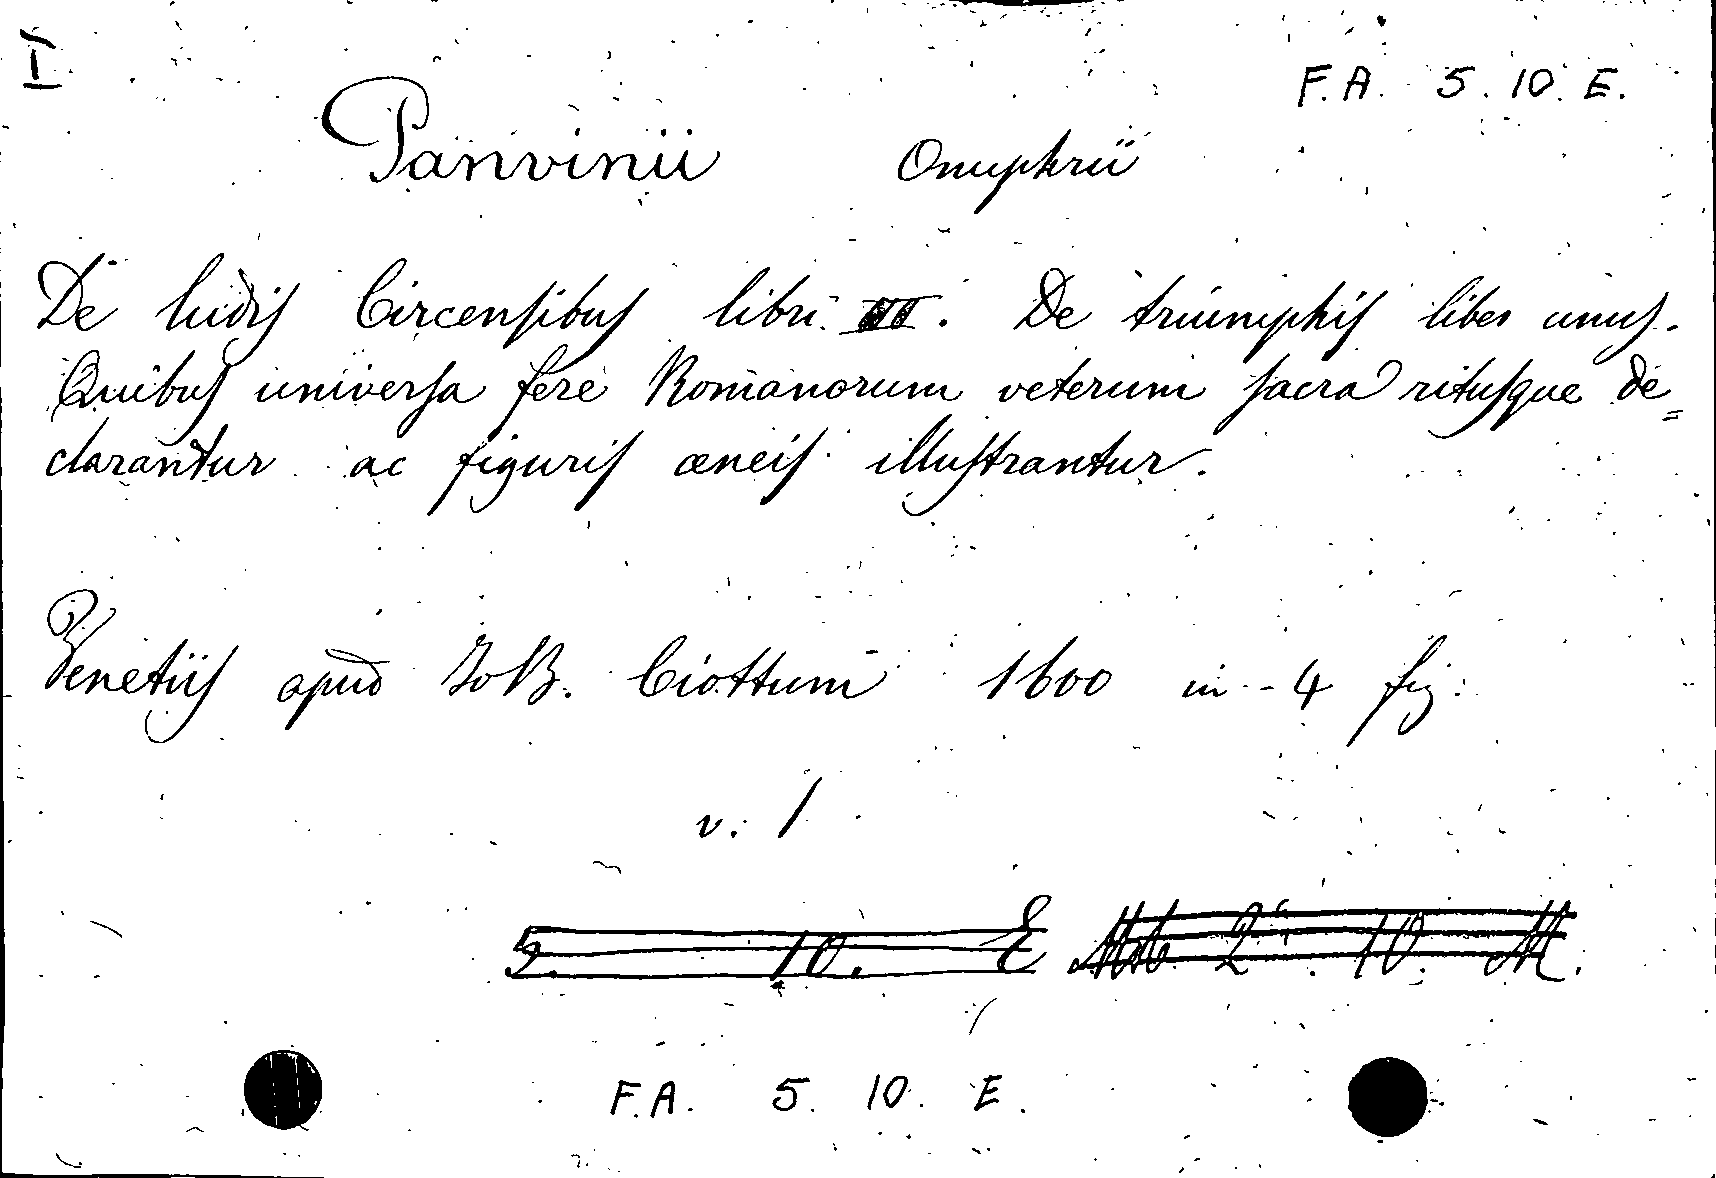 I
F.A. 5. 10. E.
Panvinii Onuphrii
De ludis Circensibus libri II. De triumphis liber unus.
Quibus universa fere Romanorum veterum sacra ritusque de=
clarantur ac figuris æneis illustrantur.
Venetiis apud Io B. Ciottum 1600 in-4 fig:
v. 1
5. 10. E 2ª. 10. M.
F.A. 5. 10. E.